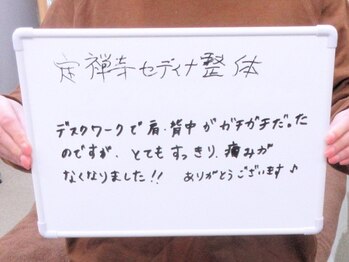 定禅寺セディナ整体
デスクワークで肩・背中がガチガチだった
のですが、とてもすっきり、痛みが
なくなりました!! ありがとうございます♪